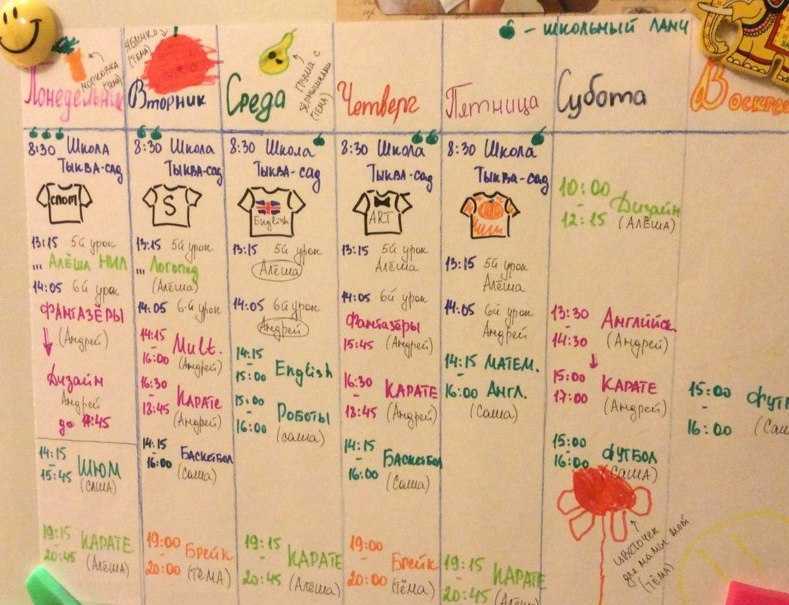 - ШКОЛЬНЫЙ ЛАНЧ
Понедельник
МОРКОВКА
(ТЁМА)
8:30 ШКОЛА
ТЫКВА-САД
СПОРТ
13:15 5й урок
... АЛЁША НИЛ
14:05 6й урок
ФАНТАЗЁРЫ
(Андрей)
Дизайн
Андрей
14:15
-
15:45
ШЮМ
(САША)
19:15
-
20:45
КАРАТЕ
(Алёша)
Вторник
ЯБЛОКО
(ТЁМА)
8:30 Школа
ТЫКВА-САД
S
13:15 5й урок
... Логопед
(Алёша)
14:05 6-й урок
14:15
-
16:00
Mult.
(Андрей)
16:30
-
18:45
КАРАТЕ
(Андрей)
14:15
-
16:00
БАСКЕТБОЛ
(Саша)
19:00
-
20:00
Брейк
(ТЁМА)
Среда
ГРУША С
(ТЁМА)
8:30 Школа
ТЫКВА-САД
English
13:15 5й урок
Алёша
14:05 6й урок
Андрей
14:15
-
15:00
English
15:00
-
16:00
РОБОТЫ
(Саша)
19:15
-
20:45
КАРАТЕ
(Алёша)
Четверг
8:30 Школа
ТЫКВА-САД
ART
13:15 5й урок
Алёша
14:05 6й урок
Фантазёры
15:45 (Андрей)
16:30
-
18:45
КАРАТЕ
(Андрей)
14:15
-
16:00
Баскетбол
(Саша)
19:00
-
20:00
Брейк
(Тёма)
Пятница
8:30 Школа
ТЫКВА-САД
13:15 5й урок
Алёша
14:05 6й урок
Андрей
14:15 МАТЕМ.
-
16:00 Англ.
(Саша)
19:15
-
20:45
КАРАТЕ
(Алёша)
Субота
10:00
-
12:15
Дизайн
(АЛЁША)
13:30
-
14:30
Английск.
(Андрей)
15:00
-
17:00
КАРАТЕ
(Андрей)
15:00
-
16:00
ФУТБОЛ
(САША)
ЦВЕТОЧЕК
для мамы мой
(ТЁМА)
Воскре
15:00
-
16:00
ФУТ
(Саш